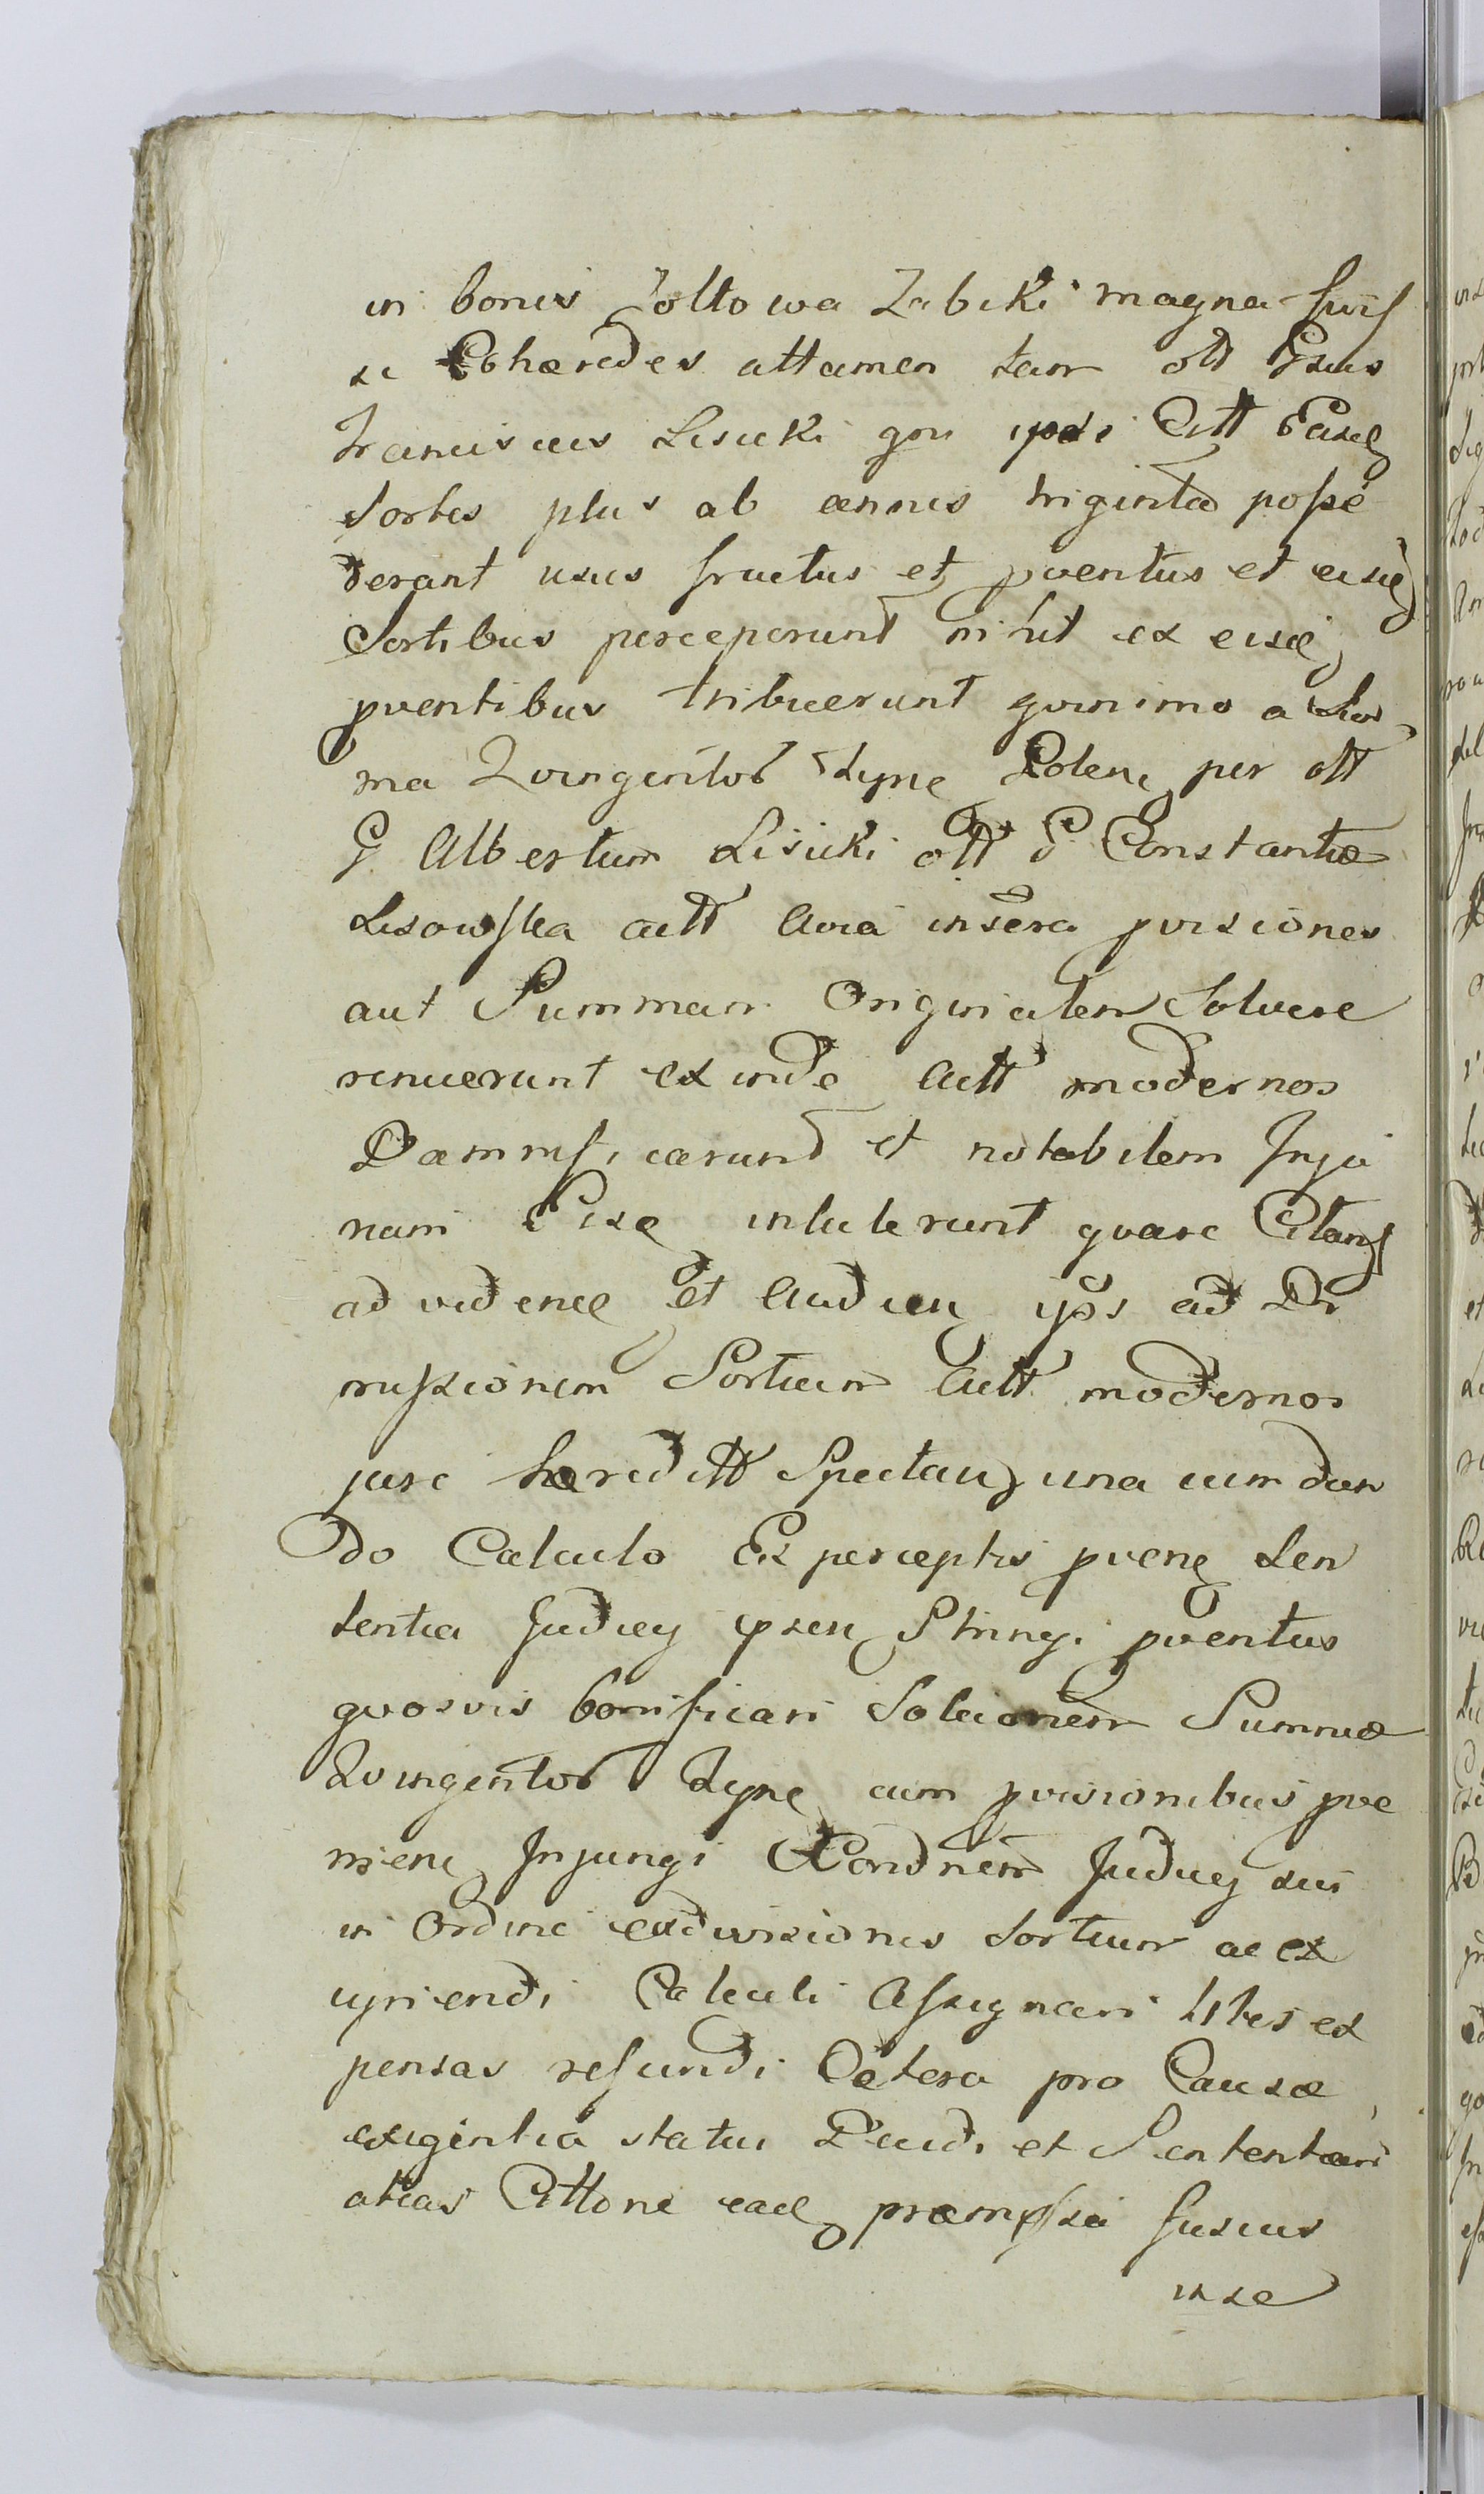 in bonis Zołtowa Zabiki magna fuiss
se Cohæredes attamen tam olt Gsus
Franciscus Lisicki qm ipsi Citt Easd
Sortes plus ab annis triginta posse
derant usus fructus et pventus et eisd
Sortibus perceperunt nihil ex eisd
pventibus tribuerunt qvinimo a Sum
ma Qvingentor Tynf Polone per olt
G Albertum Lisicki olt G Constantiæ
Lisowska actt Avia inscra pvisiones
aut Summam Originalem Solvere
renuerunt exinde Actt modernos
Damnificarunt et notabilem Inju
riam Eisd intulerunt qvare Citans
ad vidend et Audien ipos ad Di
missionem Sortium Actt modernos
jure hæreditt Spectan una cum dan
do Calculo Ex perceptis pvent Sen
tentia Judicy ipsen Stringi pventus
qvosvis bonificari Solucionem Summæ
Qvingentor Tynf cum pvisionibus pve
nien Injungi Condnem Judicy sui
in Ordine exdivisionis Sortium ac ex
cipiendi Calculi Assignari litis ex
pensas refundi Cetera pro Causæ
exigentia statui Decid et Sententiari
alias Cittone ead præmissa fusius
in se